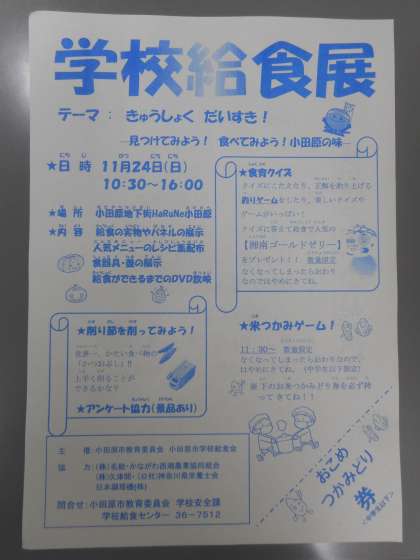 学校給食展
テーマ： きゅうしょく だいすき！
―見つけてみよう！ 食べてみよう！小田原の味―
★日 時 11月24日(日)
10:30～16:00
★場 所 小田原地下街HaRuNe小田原
★内 容 給食の実物やパネルの展示
人気メニューのレシピ集配布
食器具・釜の展示
給食ができるまでのDVD放映
★食育クイズ
クイズにこたえたり、正解を釣り上げる
釣りゲームをしたり、楽しいクイズや
ゲームがいっぱい！
クイズに答えて給食で人気の
【湘南ゴールドゼリー】
をプレゼント！！ 数量限定
なくなってしまったらおわり
なのではやめにきてね。
★削り節を削ってみよう！
世界一、かたい食べ物の
「かつおぶし」!!
上手く削ることが
できるかな？
★アンケート協力(景品あり)
★米つかみゲーム！
11：30～ 数量限定
なくなってしまったらおわりなので、
はやめにきてね。(中学生以下限定)
最下のお米つかみどり券を必ず持
ってきてね！！
主 催 小田原市教育委員会 小田原市学校給食会
協 力 (株)名給・かながわ西湘農業協同組合
(株)久津間・(公社)神奈川県栄養士会
日本調理機(株)
問合せ：小田原市教育委員会 学校安全課
学校給食センター 36-7512
おこめ
つかみどり
券
<中学生以下>